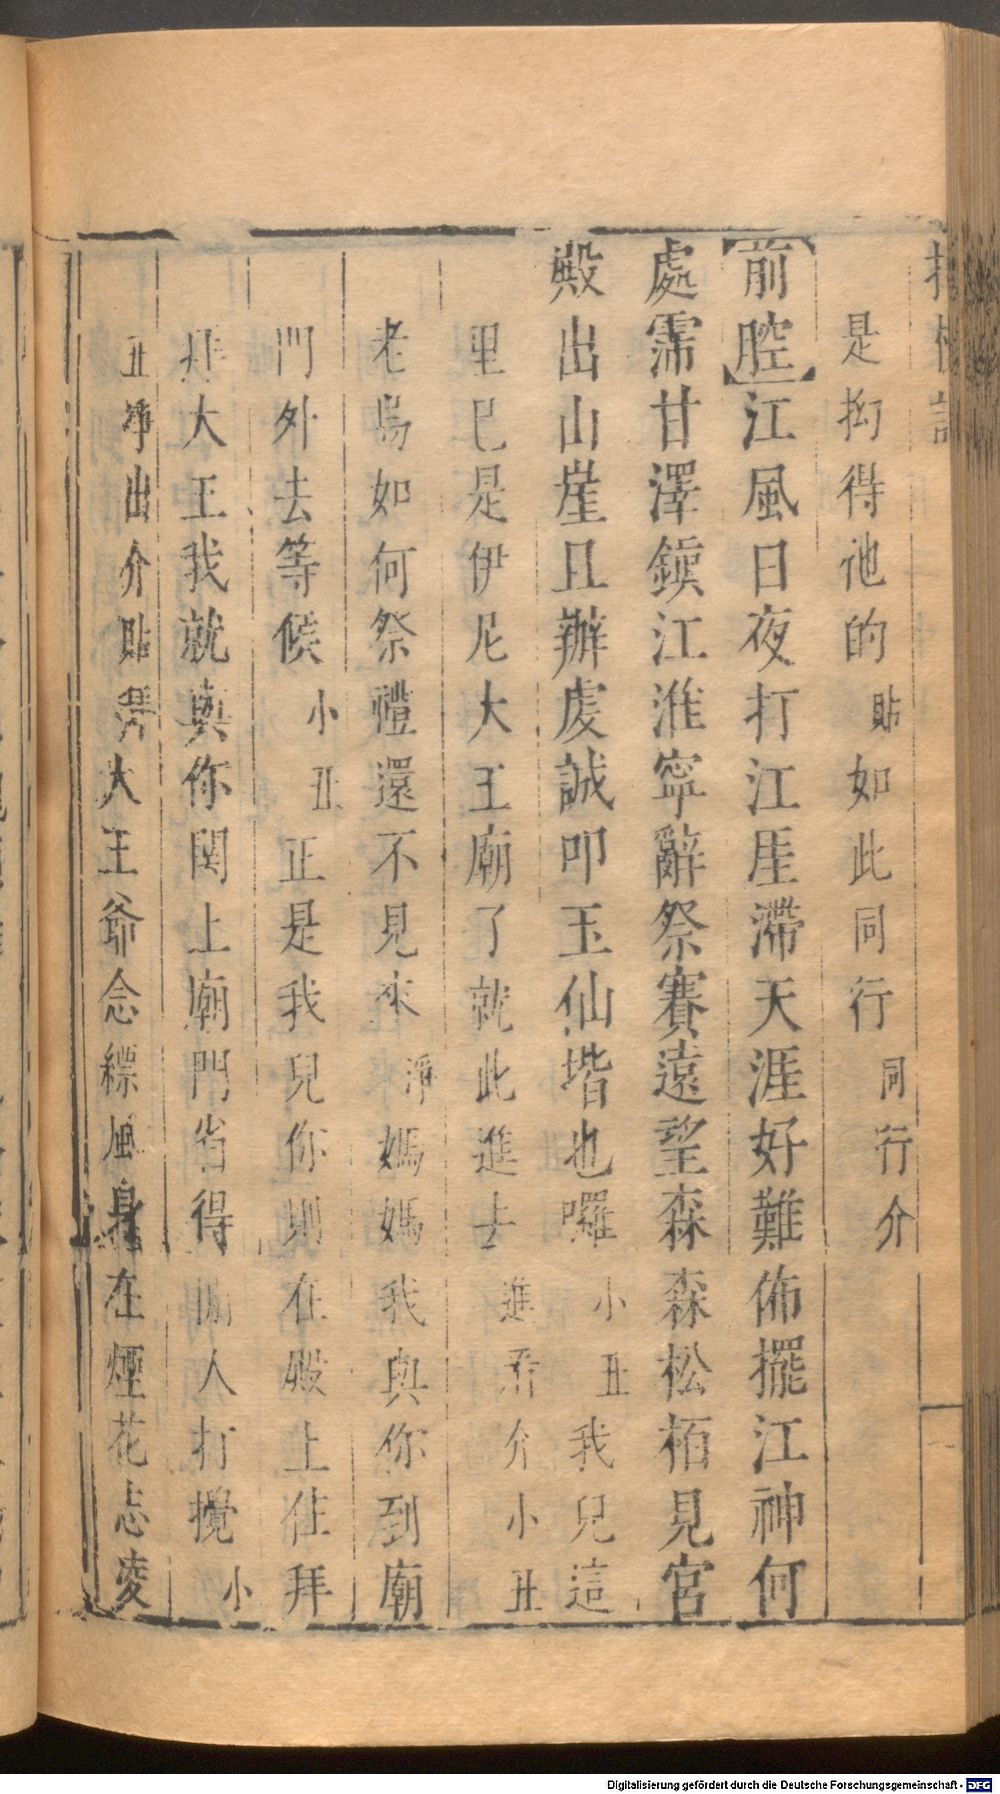 是抝得他的貼如此同行同行介
前腔江風日夜打江厓滯天涯好難佈擺江神何
處霈甘澤鎭江淮寜辭祭賽遠望森森松栢見宮
殿出山崖且辦虔誠叩玉仙堦也囉小丑我兒這
里已是伊尼大王廟了就此進去進介小丑
老爲如何祭禮還不見來淨媽媽我與你到廟
門外去等候小丑正是我兒你則在殿上住拜
拜大王我就與你関上廟門省得閒人打攪小
丑淨出介貼大王爺念縹風身在煙花志凌
Digitalisierung gefördert durch die Deutsche Forschungsgemeinschaft - DFG